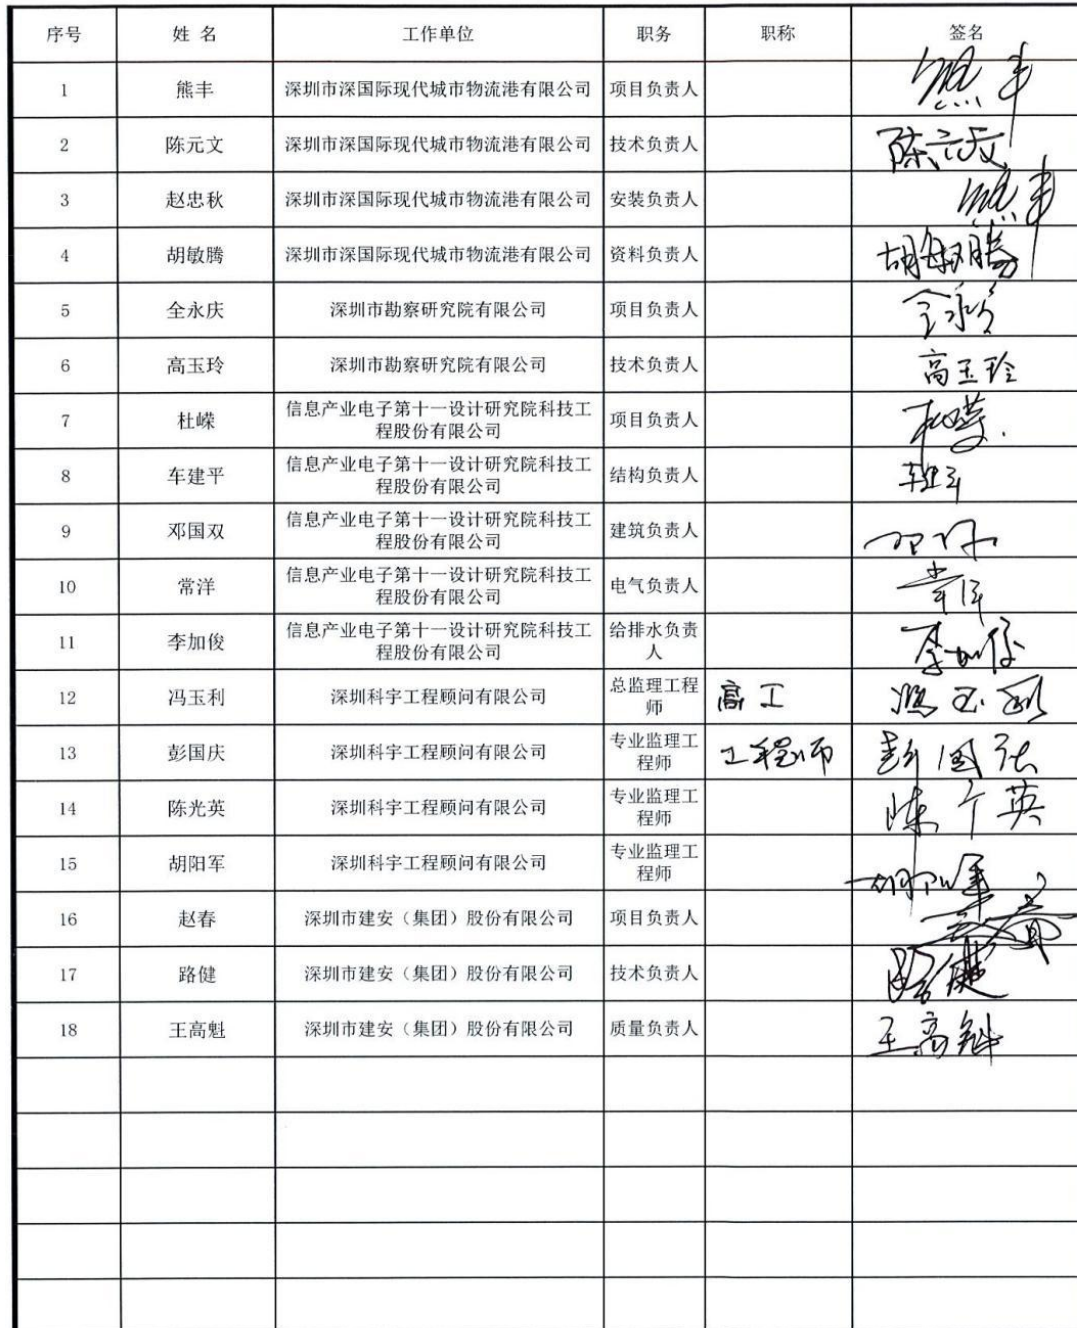 序号 姓 名 工作单位 职务 职称 签名
1 熊丰 深圳市深国际现代城市物流港有限公司 项目负责人 熊丰
2 陈元文 深圳市深国际现代城市物流港有限公司 技术负责人 陈元文
3 赵忠秋 深圳市深国际现代城市物流港有限公司 安装负责人 熊丰
4 胡敏腾 深圳市深国际现代城市物流港有限公司 资料负责人 胡敏腾
5 全永庆 深圳市勘察研究院有限公司 项目负责人 全永庆
6 高玉玲 深圳市勘察研究院有限公司 技术负责人 高玉玲
7 杜嵘 信息产业电子第十一设计研究院科技工
程股份有限公司 项目负责人
8 车建平 信息产业电子第十一设计研究院科技工
程股份有限公司 结构负责人 车建平
9 邓国双 信息产业电子第十一设计研究院科技工
程股份有限公司 建筑负责人
10 常洋 信息产业电子第十一设计研究院科技工
程股份有限公司 电气负责人 常洋
11 李加俊 信息产业电子第十一设计研究院科技工
程股份有限公司 给排水负责
人 李加俊
12 冯玉利 深圳科宇工程顾问有限公司 总监理工程
师 高工 冯玉利
13 彭国庆 深圳科宇工程顾问有限公司 专业监理工
程师 工程师 彭国庆
14 陈光英 深圳科宇工程顾问有限公司 专业监理工
程师 陈光英
15 胡阳军 深圳科宇工程顾问有限公司 专业监理工
程师 胡阳军
16 赵春 深圳市建安（集团）股份有限公司 项目负责人 赵春
17 路健 深圳市建安（集团）股份有限公司 技术负责人 路健
18 王高魁 深圳市建安（集团）股份有限公司 质量负责人 王高魁